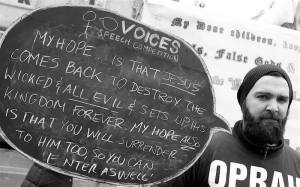 VOICES
SPEECH COMPETITION
MY HOPE IS THAT JESUS
COMES BACK TO DESTROY THE
WICKED & ALL EVIL & SETS UP HIS
KINGDOM FOREVER. MY HOPE ALSO
IS THAT YOU WILL SURRENDER
TO HIM TOO SO YOU CAN
ENTER AS WELL
My Dear children,
False Gods &
OPRAH